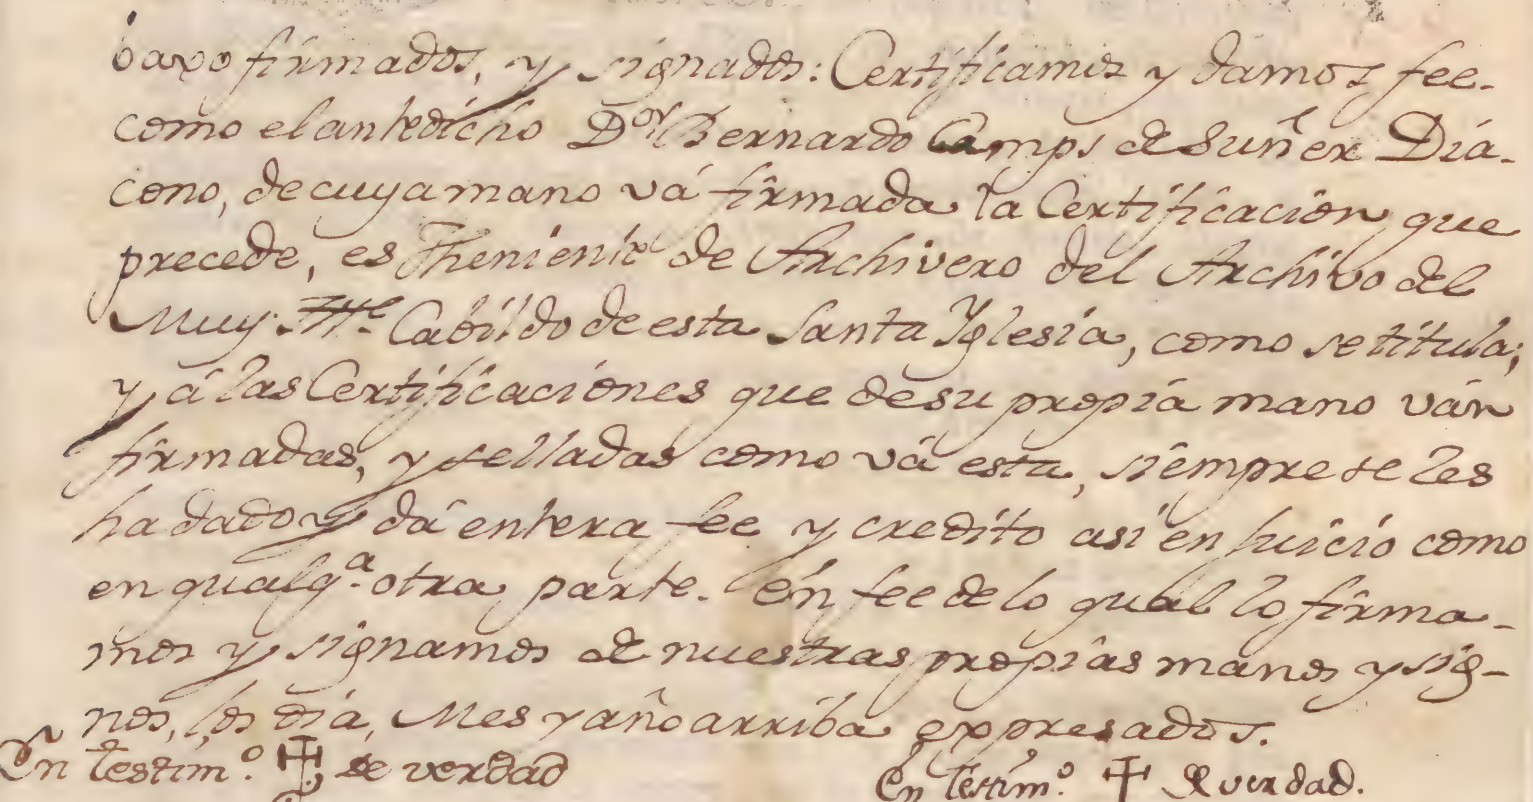 baxo firmados, y signados: Certificamos y damos fee.
como el antedicho D.on Bernardo Camps de Suñer Dia-
cono, de cuya mano vá firmada la Certificacion que
precede, es Theniente de Archivero del Archivo del
Muy Itt.e Cabildo de esta Santa Yglesia, como se titula;
y á las Certificaciones que de su propia mano ván
firmadas, y selladas como vá esta, siempre se les
ha dado y dá entera fee y credito asi en juicio como
en qualq.a otra parte. En fee de lo qual lo firma-
mos y signamos de nuestras propias manos y sig-
nos, los dia, Mes y año arriba expresados.
En testim.o ✝ de verdad En testim.o ✝ de verdad.